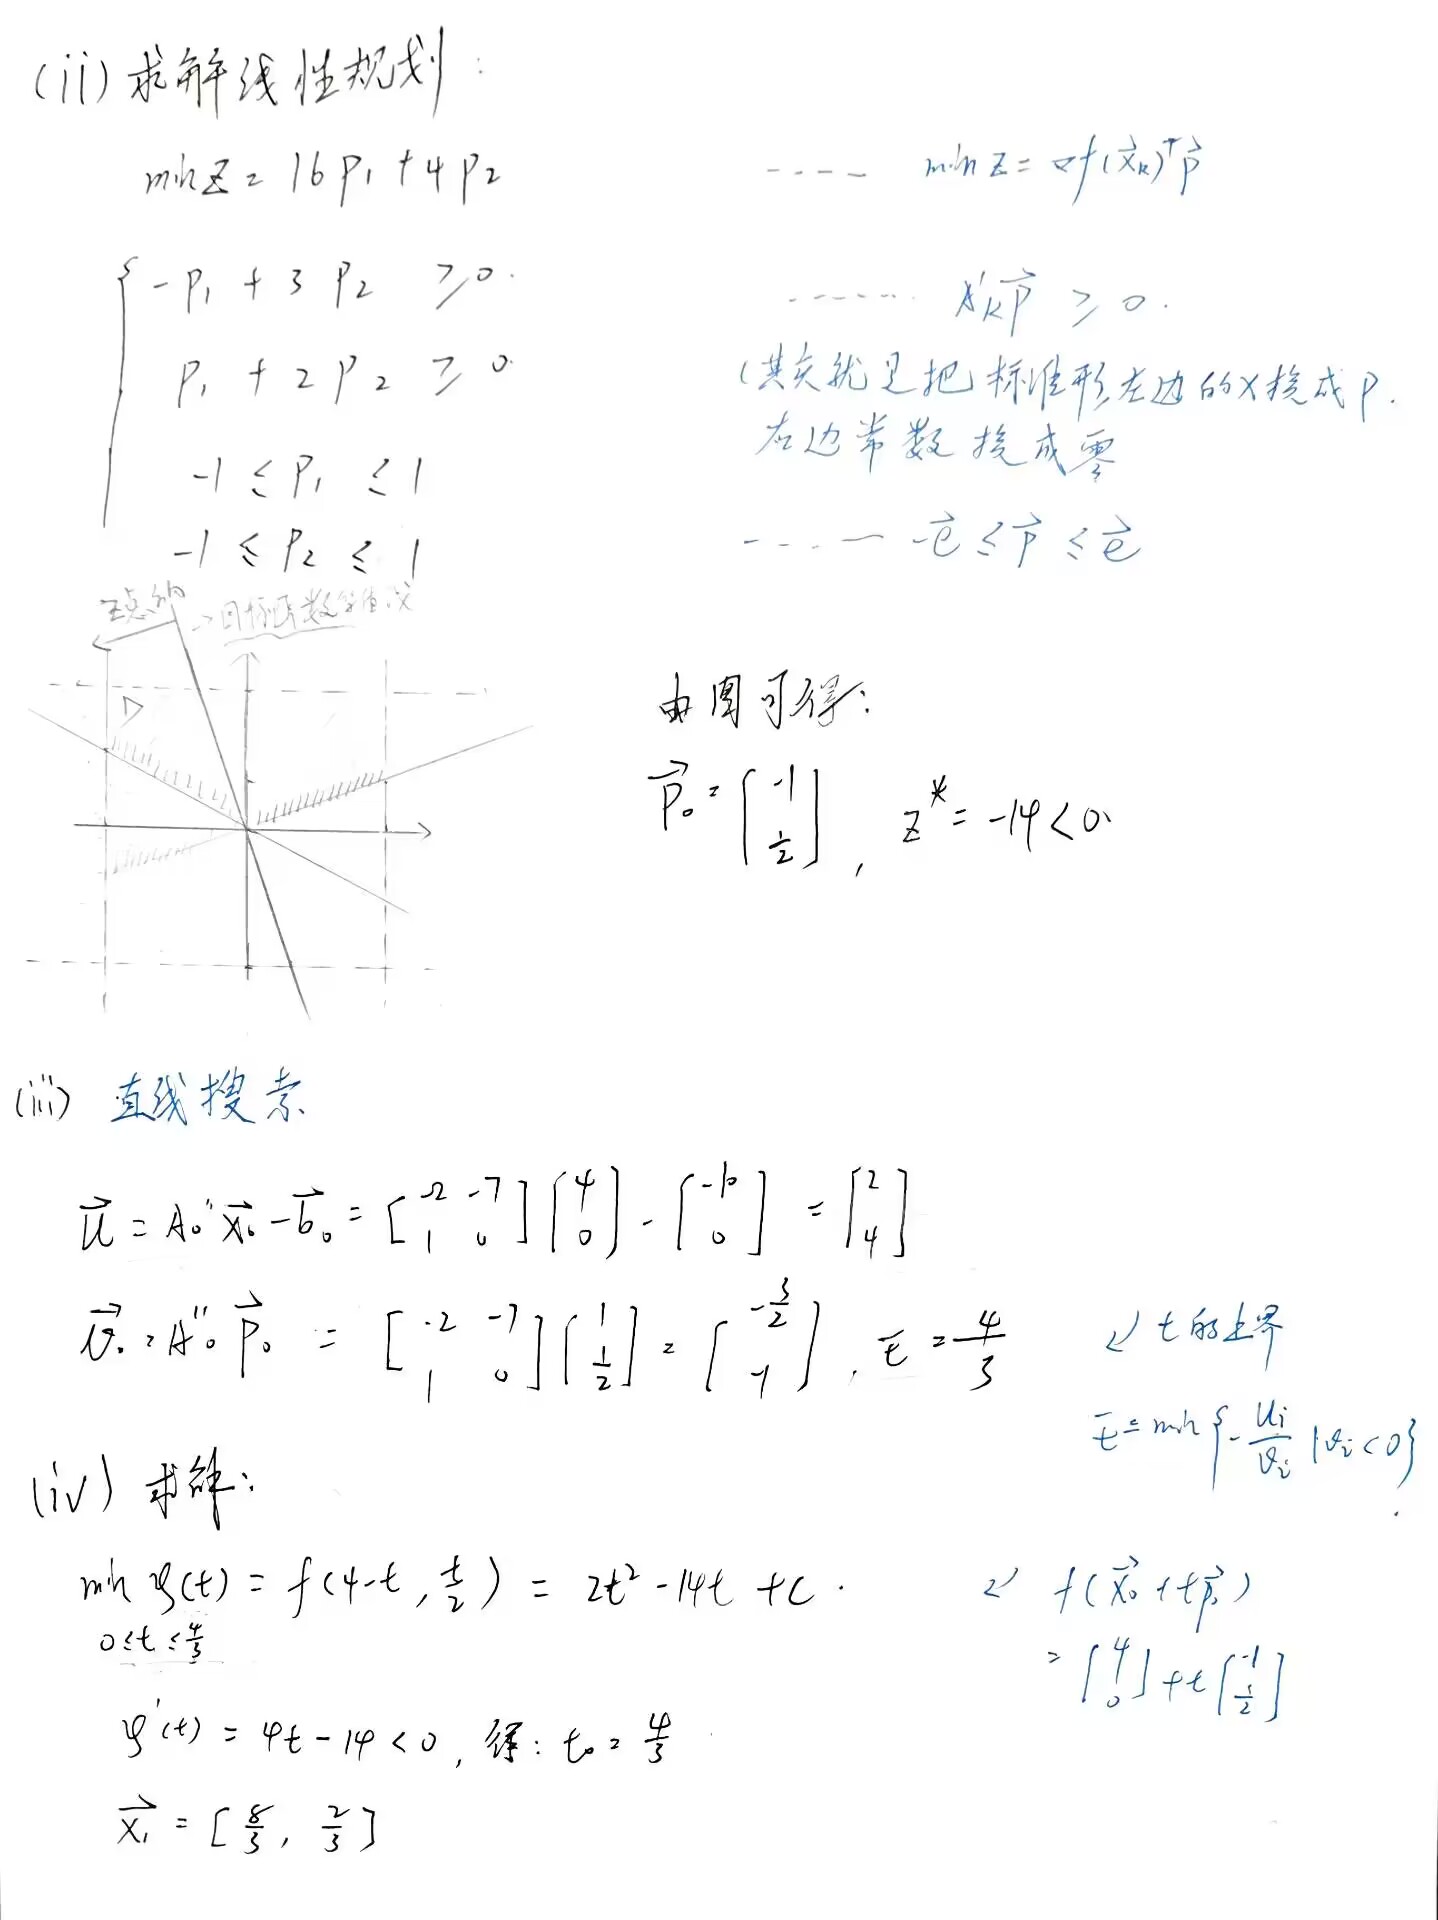 (ii) 求解线性规划:
min Z = 16p₁ + 4p₂ ---- min Z = ∇f(x⃗ₖ)ᵀp⃗
{ -p₁ + 3p₂ ≥ 0. ------- A'ₖp⃗ ≥ 0.
p₁ + 2p₂ ≥ 0. (其实就是把标准形左边的X换成P.
-1 ≤ p₁ ≤ 1 右边常数换成零
-1 ≤ p₂ ≤ 1 ---- -e⃗ ≤ p⃗ ≤ e⃗
→目标函数等值线
D
由图可得:
p⃗₀ = [-1 ½], z* = -14 < 0.
(iii) 直线搜索
u⃗ = A₀''x⃗₀ - b⃗₀ = [-2 -7; 1 0][4; 0] - [-10; 0] = [2; 4]
v⃗₀ = A''₀p⃗₀ = [-2 -7; 1 0][1; ½] = [-3/2; -1], t̄ = 4/3 ↙ t的上界
t̄ = min{-uᵢ/vᵢ | vᵢ < 0}
(iv) 求解:
min φ(t) = f(4-t, t/2) = 2t² - 14t + C. ↙ f(x⃗₀ + tp⃗₀)
0≤t≤4/3 = [4; 0] + t[-1; ½]
φ'(t) = 4t - 14 < 0, 得: t₀ = 4/3
x⃗₁ = [8/3, 2/3]